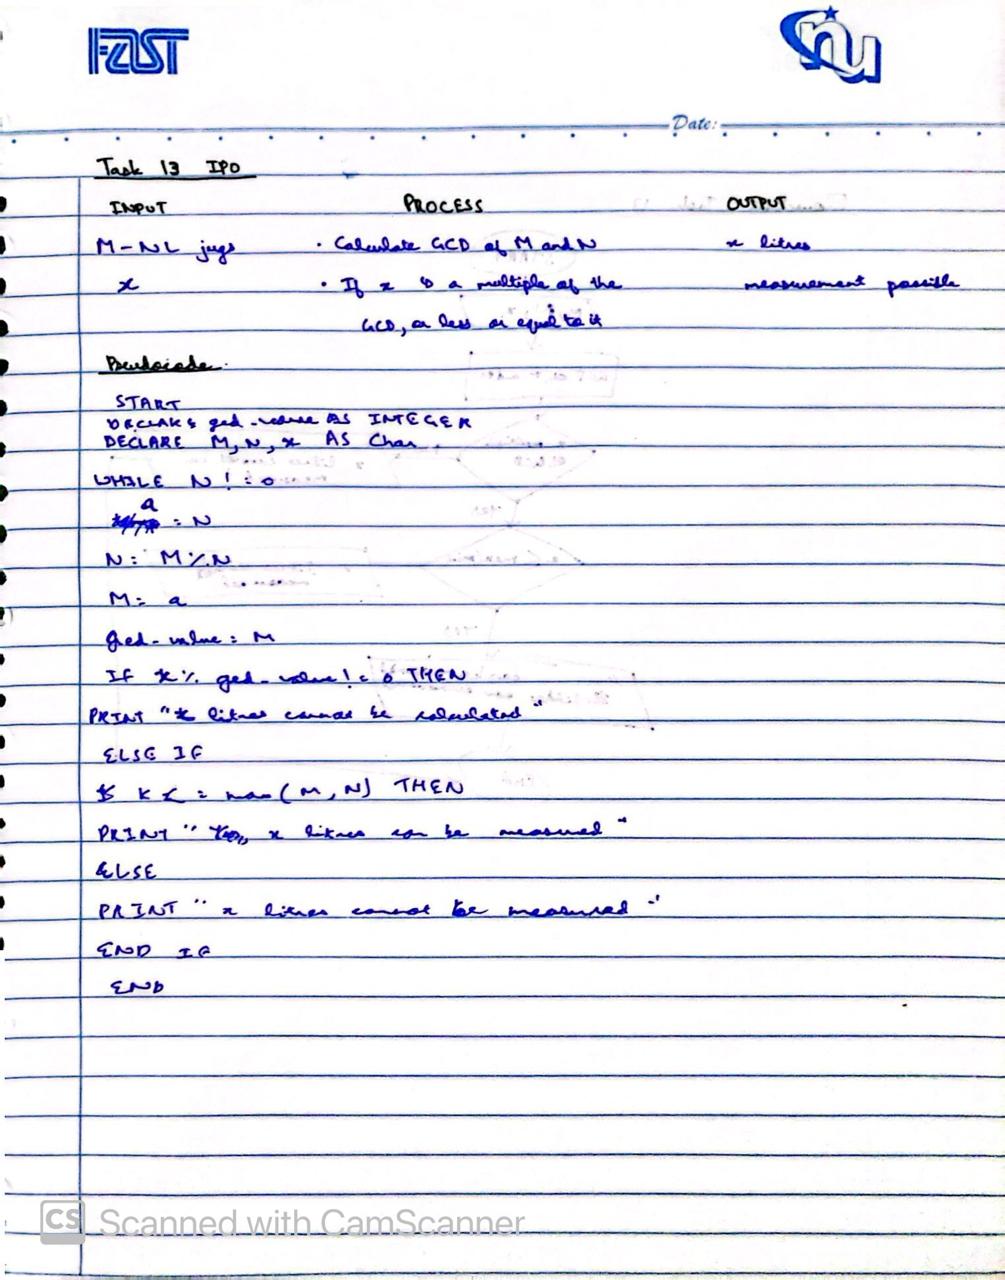 FAST
nu
Date:
Task 13 IPO
INPUT PROCESS OUTPUT
M-NL jugs · Calculate GCD of M and N x litres
x · If x is a multiple of the measurement possible
GCD, or less or equal to it
Pseudocode.
START
DECLARE gcd-value AS INTEGER
DECLARE M, N, x AS Char
WHILE N != 0
a = N
N = M % N
M = a
gcd-value = M
IF x % gcd-value != 0 THEN
PRINT "x litres cannot be calculated"
ELSE IF
x <= max(M, N) THEN
PRINT " x litres can be measured"
ELSE
PRINT "x litres cannot be measured"
END IF
END
CS Scanned with CamScanner